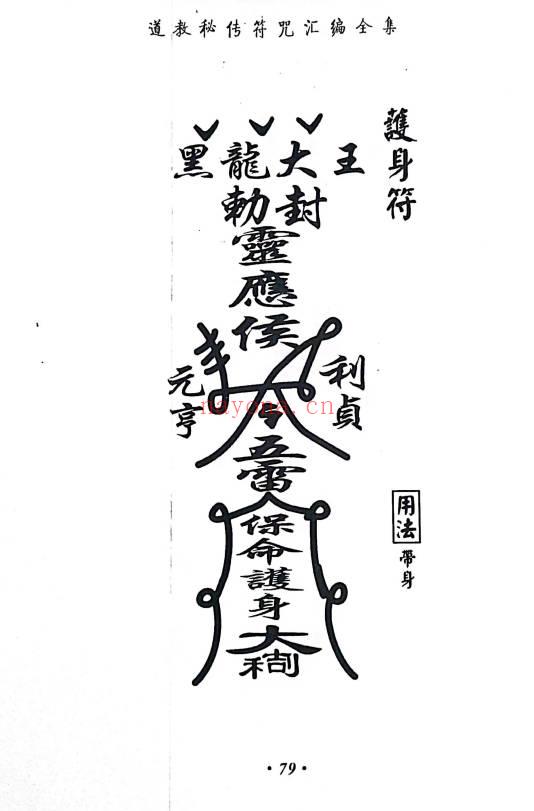 道教秘传符咒汇编全集
護身符
黑龍大王
勅封
靈應侯
元亨
利貞
令
五雷
保命護身
大利
用法
帶身
nayona.cn
·79·